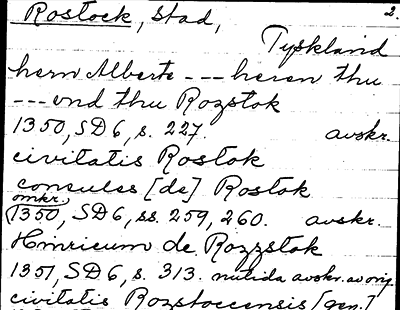 Rostock, stad, 2.
Tyskland
hern Alberte --- heren thu
--- vnd thu Rozstok
1350, SD 6, s. 227. avskr.
civitatis Rostok
consules [de] Rostok
omkr.
(1350, SD 6, ss. 259, 260. avskr.
Hinricum de Rozzstok
1351, SD 6, s. 313. nutida avskr. av orig
civitatis Rozstoccensis [gen.]